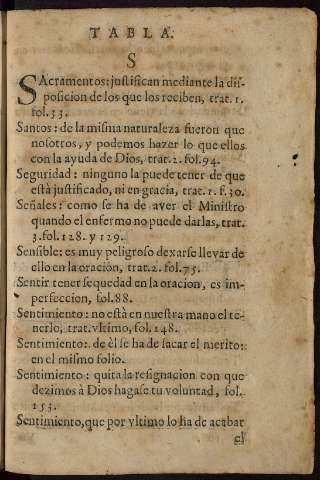 TABLA.
S
SAcramentos: justifican mediante la dis-
posicion de los que los reciben, trat. 1.
fol. 33.
Santos: de la misma naturaleza fueron que
nosotros, y podemos hazer lo que ellos
con la ayuda de Dios, trat. 2. fol. 94.
Seguridad: ninguno la puede tener de que
està justificado, ni en gracia, trat. 1. f. 30.
Señales: como se ha de aver el Ministro
quando el enfermo no puede darlas, trat.
3. fol. 128. y 129.
Sensible: es muy peligroso dexarse llevar de
ello en la oracion, trat. 2. fol. 75.
Sentir tener sequedad en la oracion, es im-
perfeccion, fol. 88.
Sentimiento: no està en nuestra mano el te-
nerlo, trat. vltimo, fol. 148.
Sentimiento: de èl se ha de sacar el merito:
en el mismo folio.
Sentimiento: quita la resignacion con que
dezimos à Dios hagase tu voluntad, fol.
153.
Sentimiento, que por vltimo lo ha de acabar
el